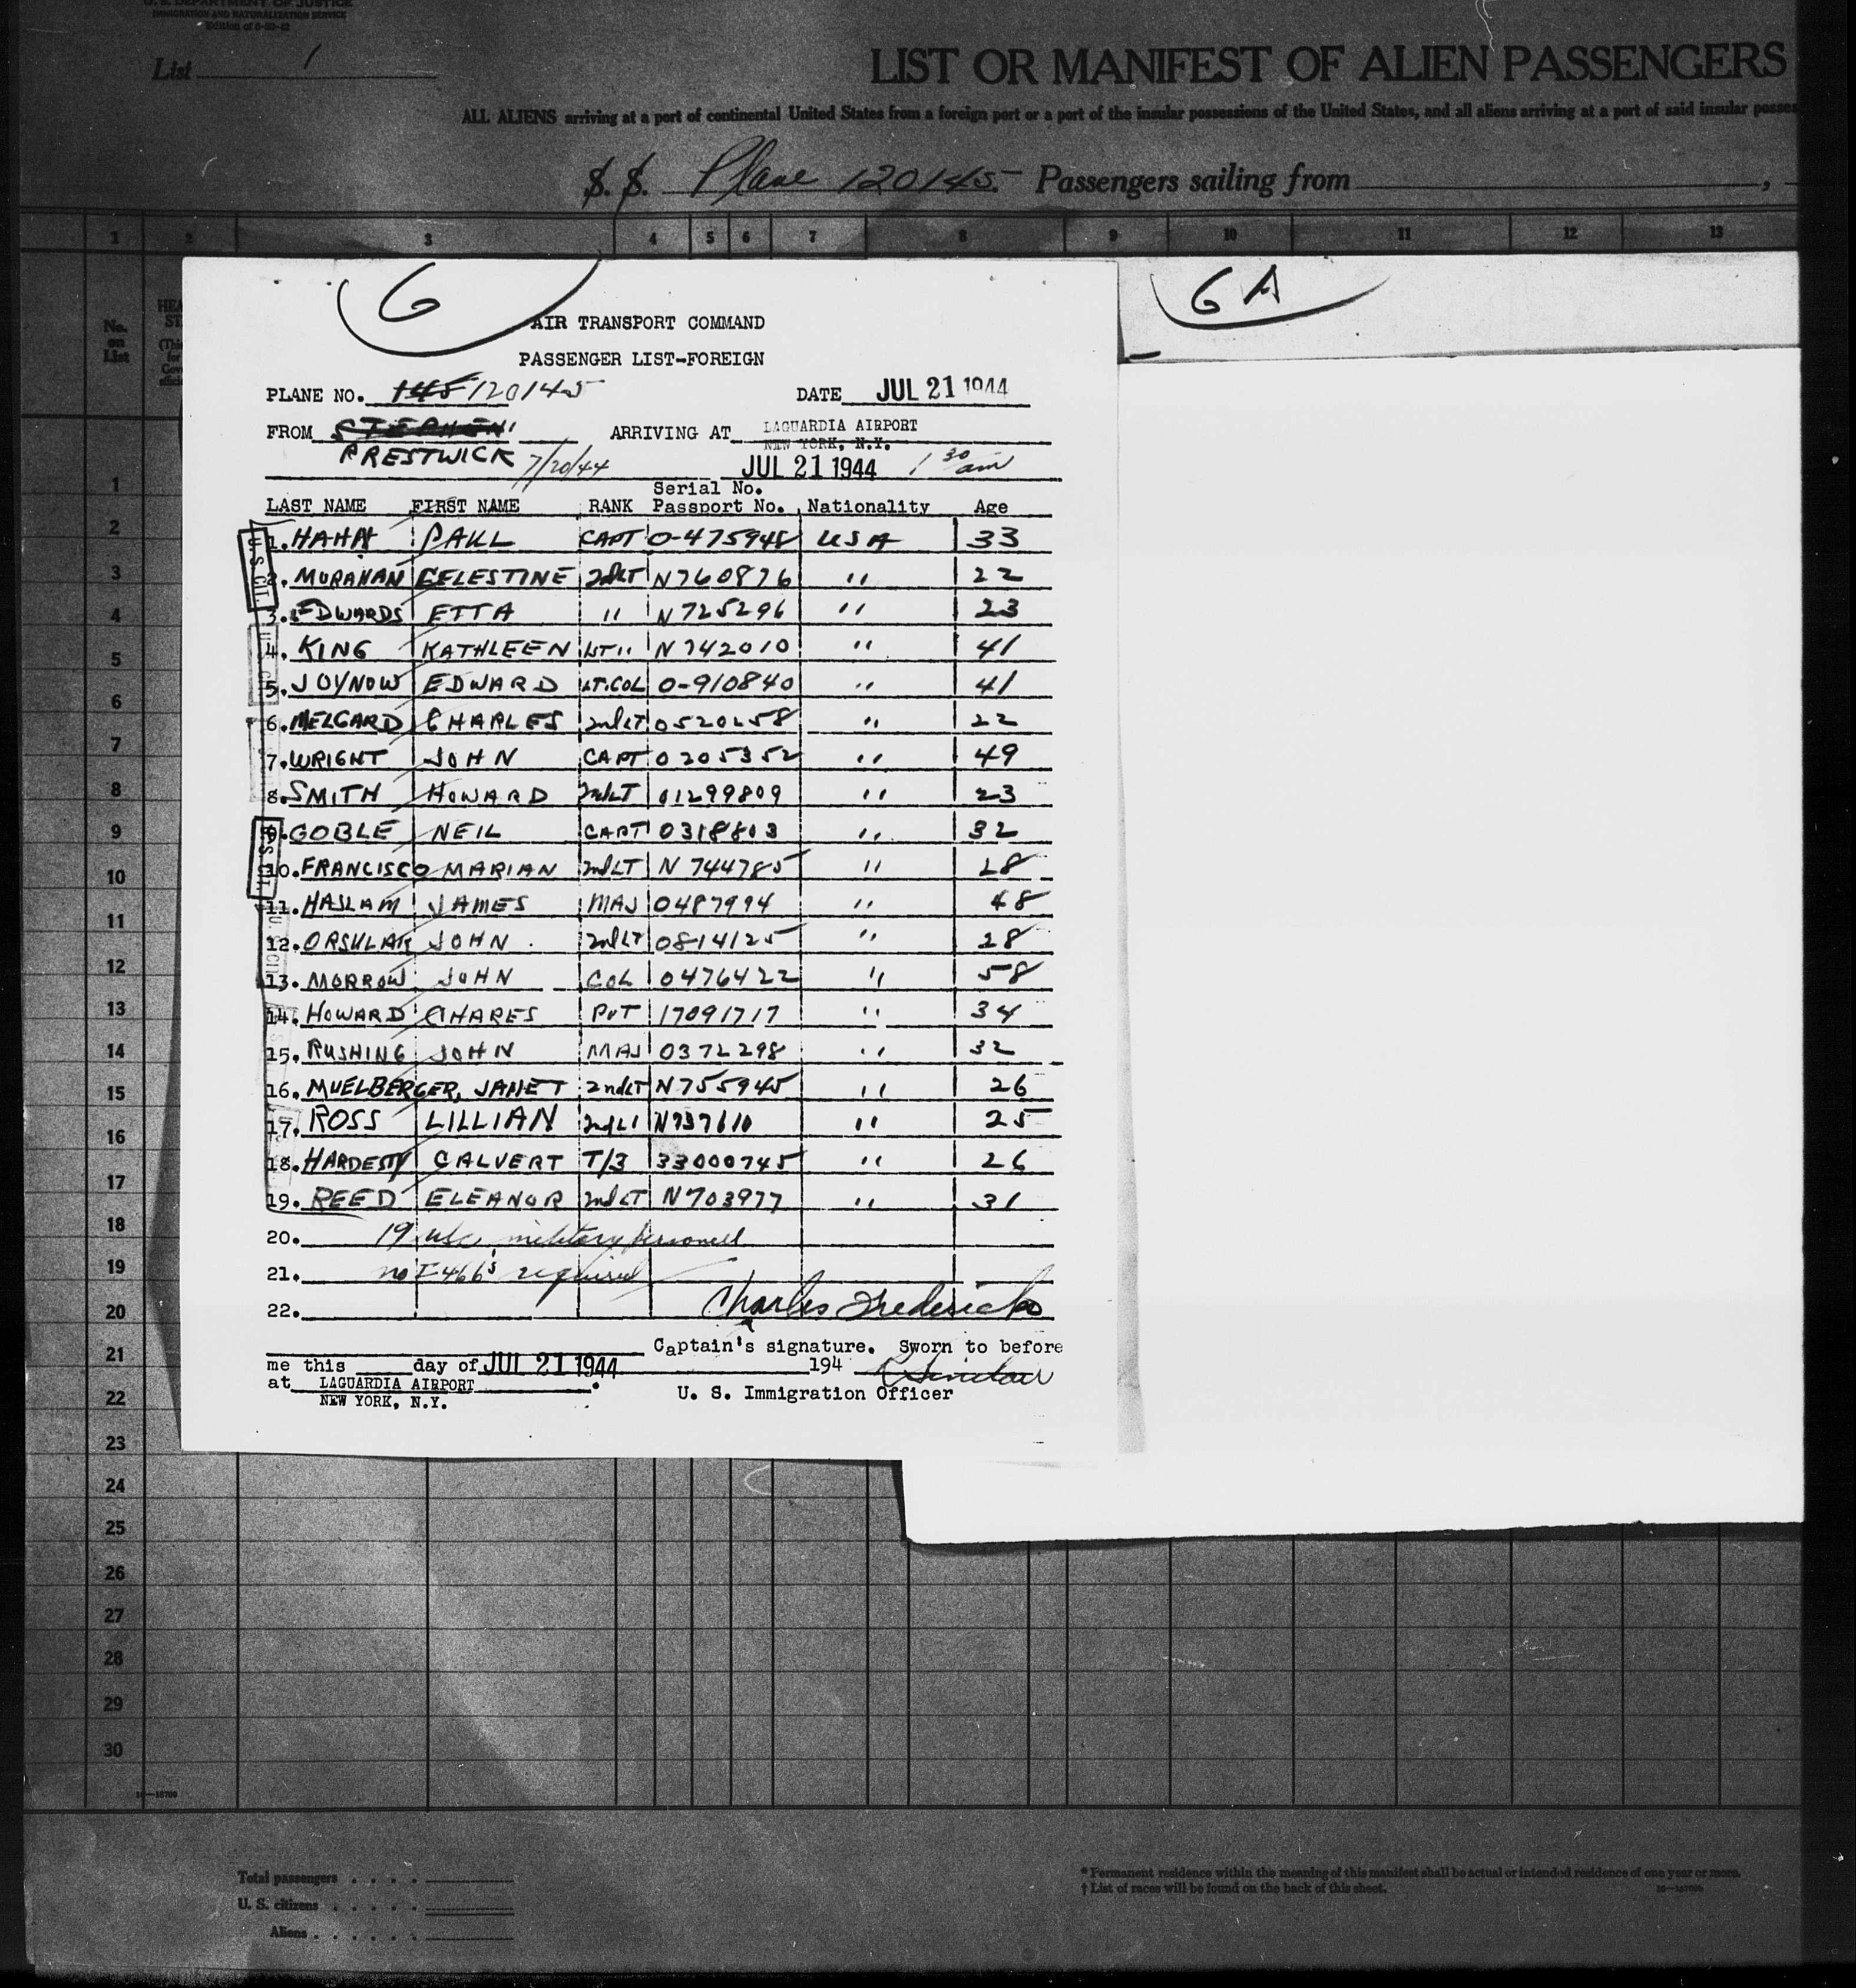 U. S. DEPARTMENT OF JUSTICE
IMMIGRATION AND NATURALIZATION SERVICE
List 1
LIST OR MANIFEST OF ALIEN PASSENGERS
ALL ALIENS arriving at a port of continental United States from a foreign port or a port of the insular possessions of the United States, and all aliens arriving at a port of said insular posses
S. S. Plane 120145 Passengers sailing from
1 2 3 4 5 6 7 8 9 10 11 12 13
No. on List
6
6 A
AIR TRANSPORT COMMAND
PASSENGER LIST-FOREIGN
PLANE NO. 145 120145 DATE JUL 21 1944
FROM STEPHEN ARRIVING AT LAGUARDIA AIRPORT
NEW YORK, N.Y.
PRESTWICK 7/20/44 JUL 21 1944 1 30 am
Serial No.
LAST NAME FIRST NAME RANK Passport No. Nationality Age
1. HAHN PAUL CAPT 0-475948 USA 33
2. MORAHAN CELESTINE 2nd LT N760876 " 22
3. EDWARDS ETTA " N725296 " 23
4. KING KATHLEEN LT " N742010 " 41
5. JOYNOW EDWARD LT.COL 0-910840 " 41
6. MELGARD CHARLES 2nd LT 0520258 " 22
7. WRIGHT JOHN CAPT 0205352 " 49
8. SMITH HOWARD 2nd LT 01299809 " 23
9. GOBLE NEIL CAPT 0318803 " 32
10. FRANCISCO MARIAN 2nd LT N 744785 " 28
11. HASLAM JAMES MAJ 0487994 " 48
12. ORSULAK JOHN 2nd LT 0814125 " 28
13. MORROW JOHN COL 0476422 " 58
14. HOWARD CHARES PVT 17091717 " 34
15. RUSHING JOHN MAJ 0372298 " 32
16. MUELBERGER, JANET 2nd LT N755945 " 26
17. ROSS LILLIAN 2nd LT N737610 " 25
18. HARDESTY CALVERT T/3 33000745 " 26
19. REED ELEANOR 2nd LT N703977 " 31
20. 19 usc military personell
21. no I-466s required
22. Charles Fredericks
Captain's signature. Sworn to before
me this day of JUL 21 1944 194 R Sinclair
at LAGUARDIA AIRPORT .
NEW YORK, N.Y.
U. S. Immigration Officer
U.S. CIT.
1
2
3
4
5
6
7
8
9
10
11
12
13
14
15
16
17
18
19
20
21
22
23
24
25
26
27
28
29
30
Total passengers . . . .
U. S. citizens . . . . .
Aliens . . . . . .
* Permanent residence within the meaning of this manifest shall be actual or intended residence of one year or more.
† List of races will be found on the back of this sheet.